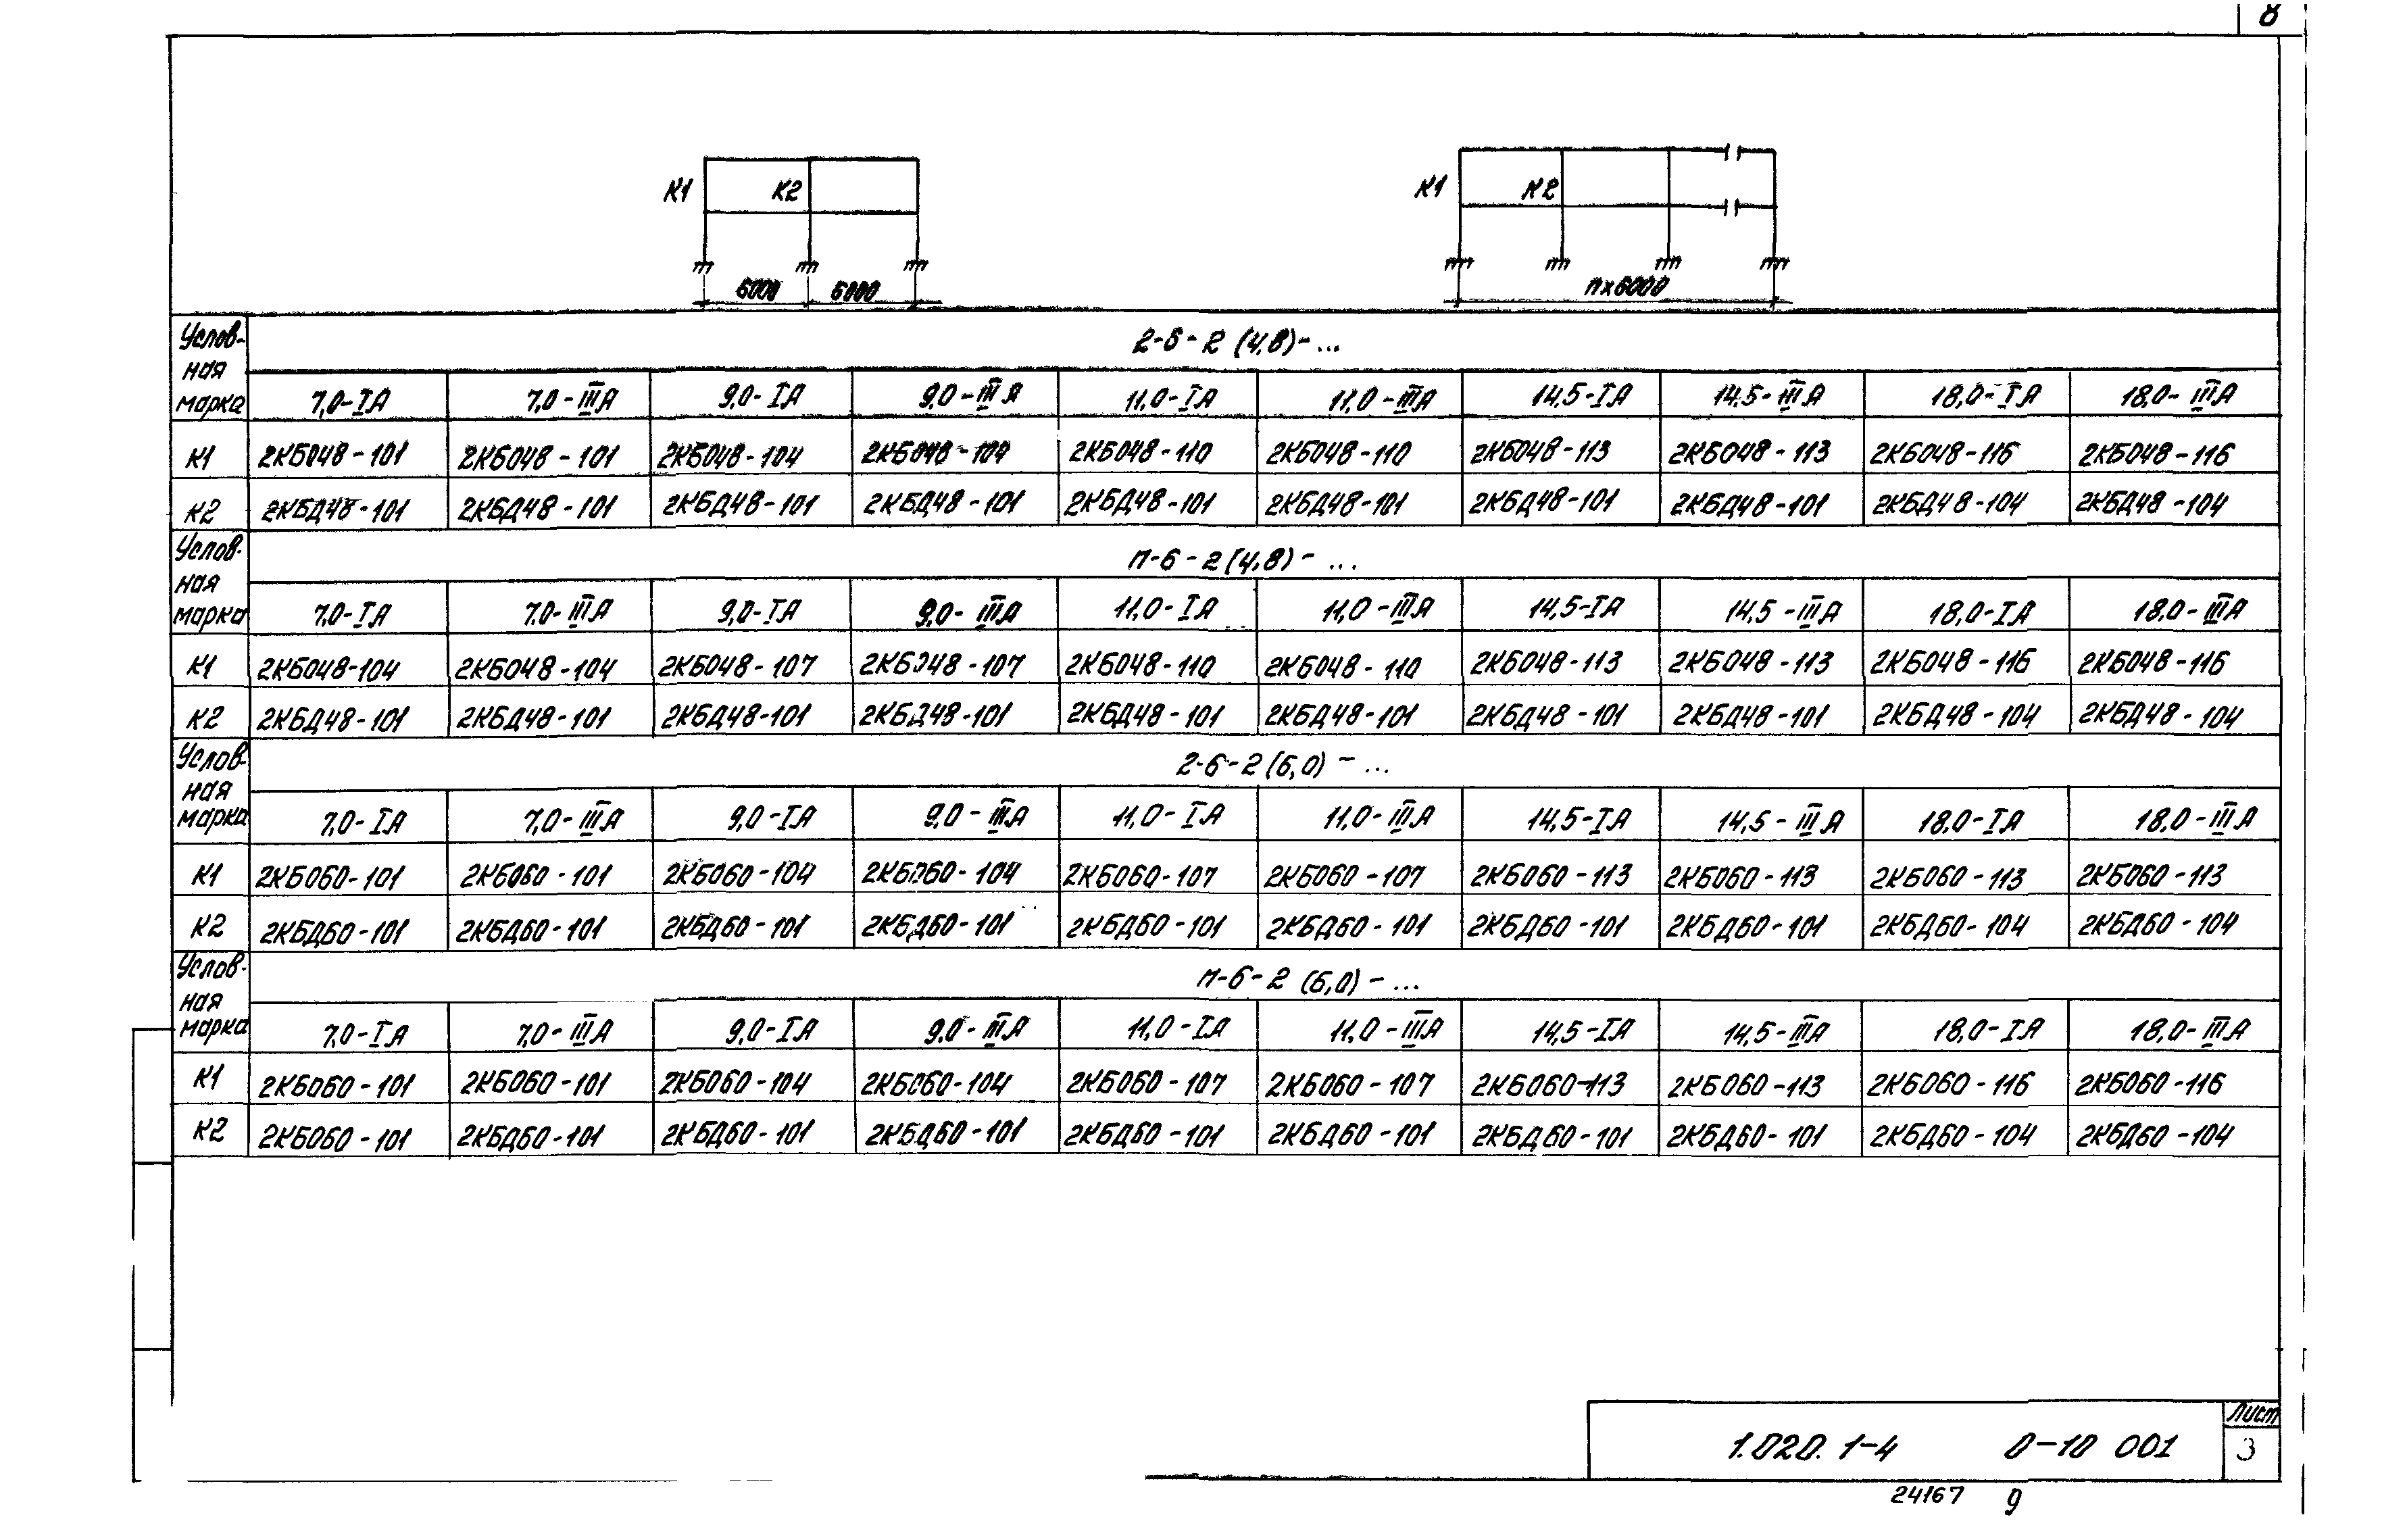 8
К1 К2 К1 К2
6000 6000 пх6000
Услов-
ная
марка
2-6-2 (4,8)-...
7,0-IА 7,0-IIIА 9,0-IА 9,0-IIIА 11,0-IА 11,0-IIIА 14,5-IА 14,5-IIIА 18,0-IА 18,0-IIIА
К1 2КБО48-101 2КБО48-101 2КБО48-104 2КБО48-104 2КБО48-110 2КБО48-110 2КБО48-113 2КБО48-113 2КБО48-116 2КБО48-116
К2 2КБД48-101 2КБД48-101 2КБД48-101 2КБД48-101 2КБД48-101 2КБД48-101 2КБД48-101 2КБД48-101 2КБД48-104 2КБД48-104
Услов-
ная
марка
п-6-2(4,8)-...
7,0-IА 7,0-IIIА 9,0-IА 9,0-IIIА 11,0-IА 11,0-IIIА 14,5-IА 14,5-IIIА 18,0-IА 18,0-IIIА
К1 2КБО48-104 2КБО48-104 2КБО48-107 2КБО48-107 2КБО48-110 2КБО48-110 2КБО48-113 2КБО48-113 2КБО48-116 2КБО48-116
К2 2КБД48-101 2КБД48-101 2КБД48-101 2КБД48-101 2КБД48-101 2КБД48-101 2КБД48-101 2КБД48-101 2КБД48-104 2КБД48-104
Услов-
ная
марка
2-6-2(6,0)-...
7,0-IА 7,0-IIIА 9,0-IА 9,0-IIIА 11,0-IА 11,0-IIIА 14,5-IА 14,5-IIIА 18,0-IА 18,0-IIIА
К1 2КБО60-101 2КБО60-101 2КБО60-104 2КБО60-104 2КБО60-107 2КБО60-107 2КБО60-113 2КБО60-113 2КБО60-113 2КБО60-113
К2 2КБД60-101 2КБД60-101 2КБД60-101 2КБД60-101 2КБД60-101 2КБД60-101 2КБД60-101 2КБД60-101 2КБД60-104 2КБД60-104
Услов-
ная
марка
п-6-2 (6,0)-...
7,0-IА 7,0-IIIА 9,0-IА 9,0-IIIА 11,0-IА 11,0-IIIА 14,5-IА 14,5-IIIА 18,0-IА 18,0-IIIА
К1 2КБО60-101 2КБО60-101 2КБО60-104 2КБО60-104 2КБО60-107 2КБО60-107 2КБО60-113 2КБО60-113 2КБО60-116 2КБО60-116
К2 2КБО60-101 2КБД60-101 2КБД60-101 2КБД60-101 2КБД60-101 2КБД60-101 2КБД60-101 2КБД60-101 2КБД60-104 2КБД60-104
1.020.1-4 0-10 001
Лист
3
24167 9